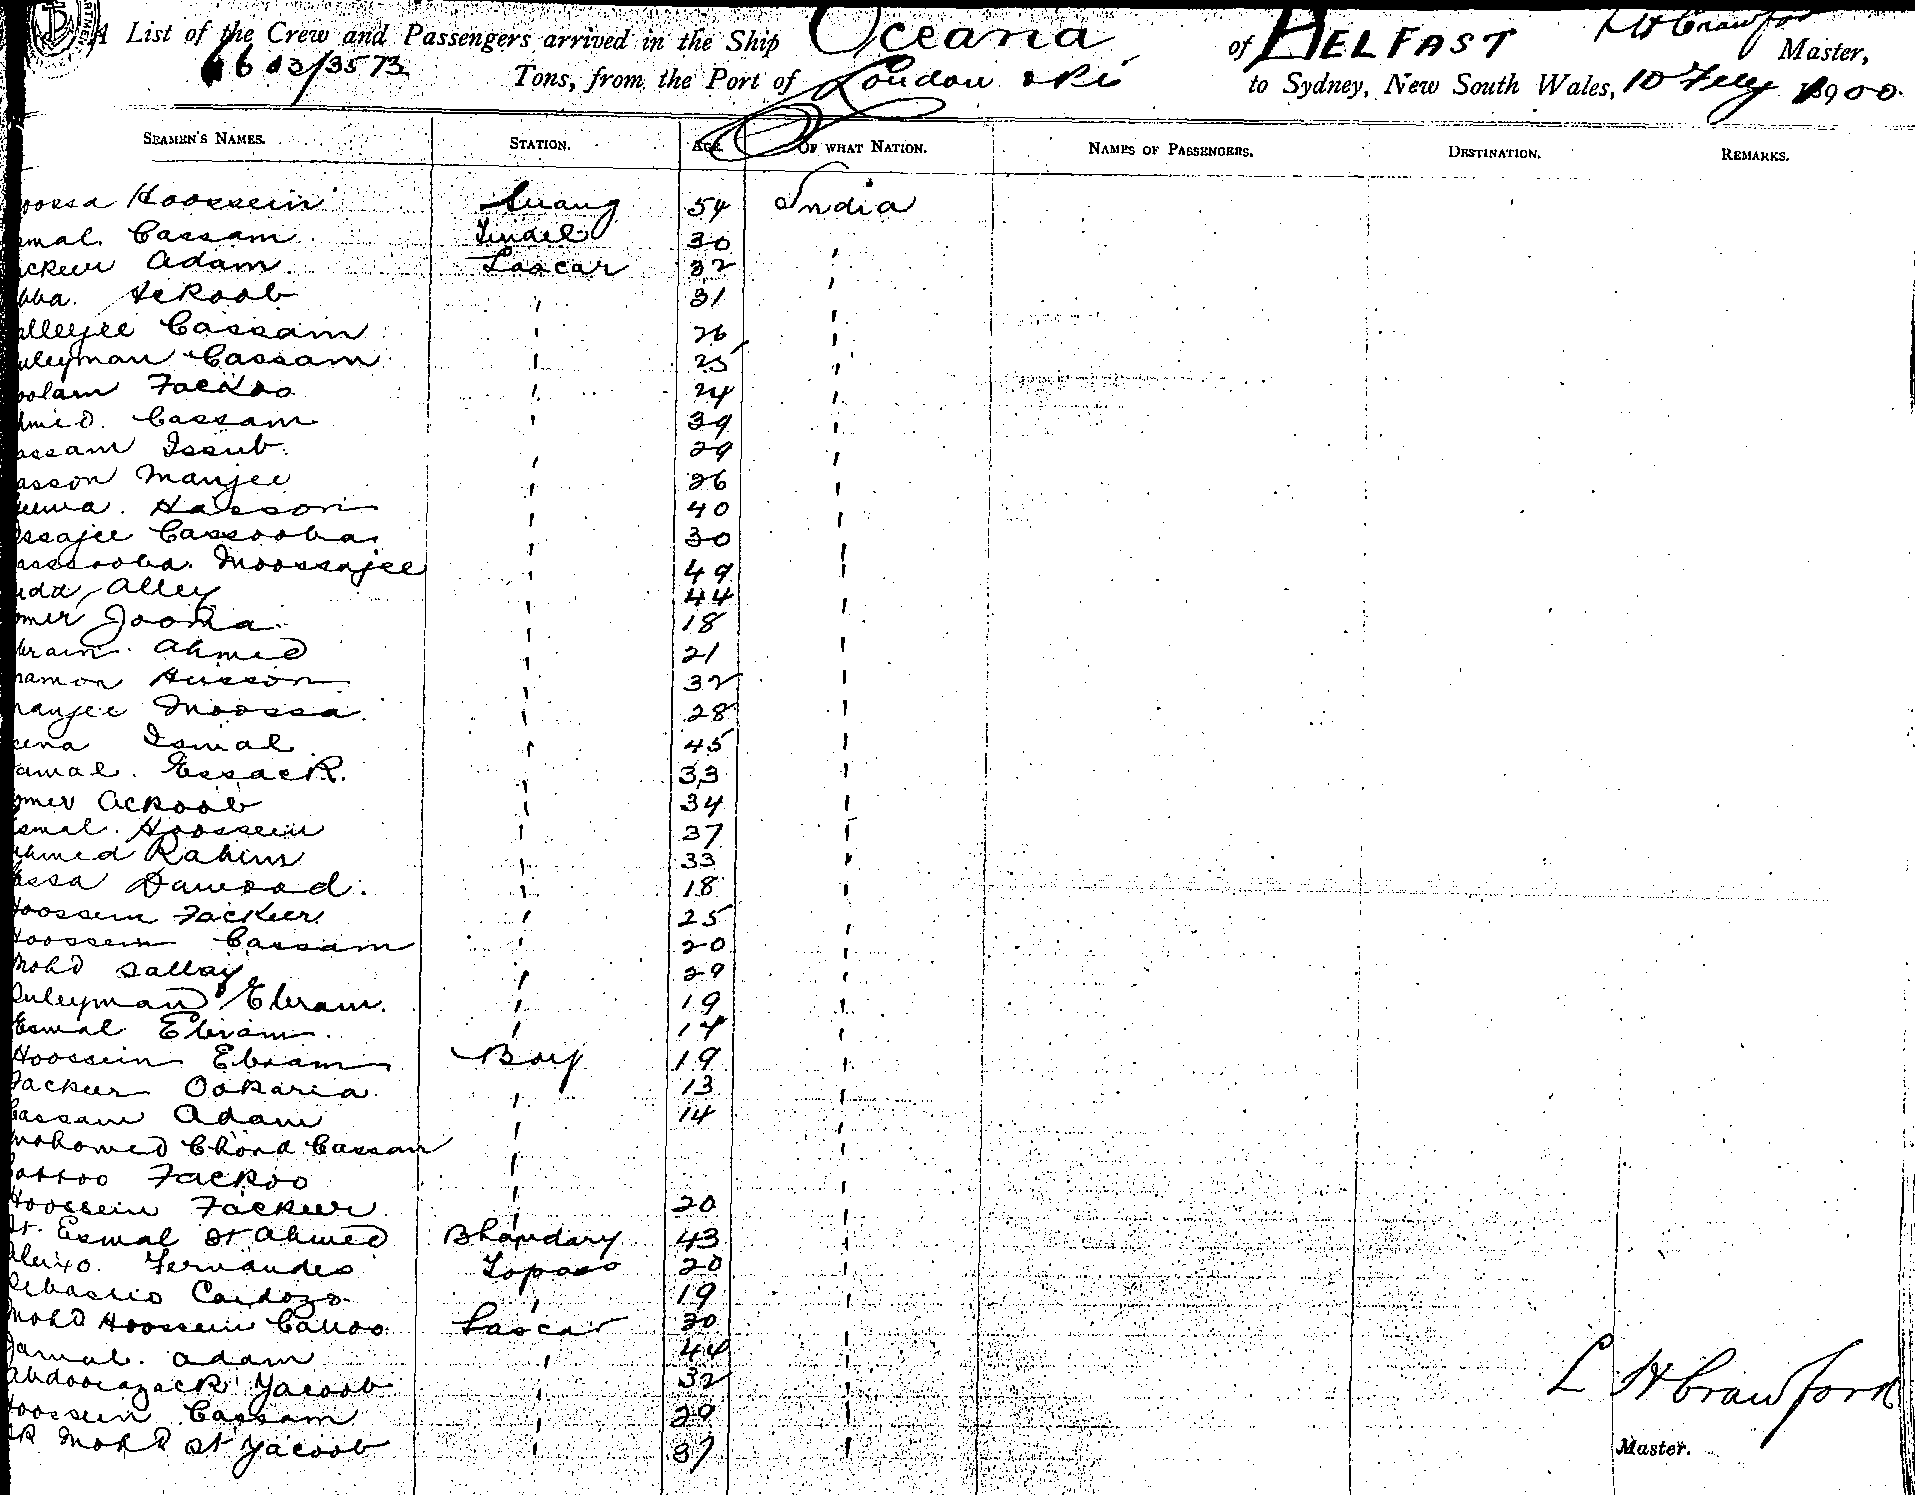 A List of the Crew and Passengers arrived in the Ship Oceana of BELFAST L H Crawford Master,
6603/3573 Tons, from the Port of London to Sydney, New South Wales, 10 Feby 1900.
SEAMEN'S NAMES. STATION. AGE. OF WHAT NATION. NAMES OF PASSENGERS. DESTINATION. REMARKS.
oossa Hoossein 54 India
smal. Cassam Tindel 30 "
ackeer Adam Lascar 32 "
bba. Ackoob " 31 "
alleyjee Cassam " 26 "
uleyman Cassam " 25 "
oolam Fackoo " 24 "
hmed. Cassam " 39 "
assam Issub. " 29 "
asson Manjee " 26 "
Hasson " 40 "
ssajee Cassooba " 30 "
assooba. Moossajee " 49 "
Alley " 44 "
omer Jooma " 18 "
brain. Ahmed " 21 "
Husson " 32 "
anjee Moossa. " 28 "
Ismal " 45 "
amal. Essack. " 33 "
omer Ackoob " 34 "
smal. Hoossein " 37 "
Ahmed Rahim " 33 "
assa Dawood. " 18 "
Hoossein Fackeer " 25 "
Hoossein Cassam " 20 "
Mohd Sallay " 29 "
Suleyman Ebram. " 19 "
Esmal Ebram. " 14 "
Hoossein Ebram Boy 19 "
Fackeer Ookaria " 13 "
Cassam Adam " 14 "
Mohomed Chona Cassam " "
Fackoo " "
Hoossein Fackeer " 20 "
Esmal St Ahmed Bhandary 43 "
Aleixo. Fernandes Topass 20 "
Sebastio Cardozo " 19 "
Mohd Hoossein Lascar 30 "
Jamal. Adam " 44 "
Abdoorazack Yacoob " 32 "
Hoossein Cassam " 29 "
Mohd St Yacoob " 37 "
L H Crawford
Master.